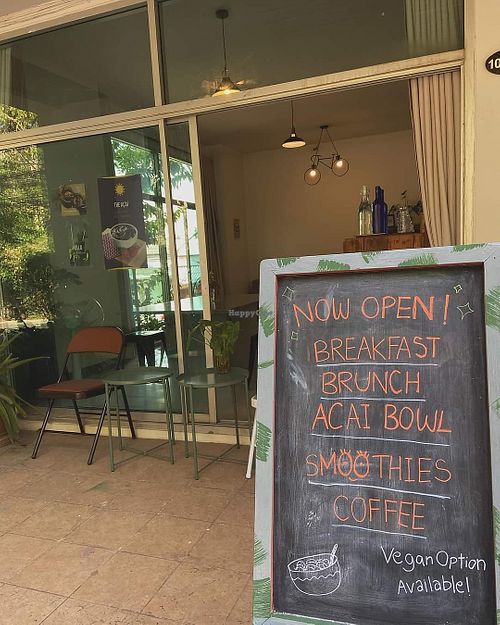 10
THE AÇAÍ
HappyC
NOW OPEN!
BREAKFAST
BRUNCH
ACAI BOWL
SMOOTHIES
COFFEE
Vegan Option
Available!